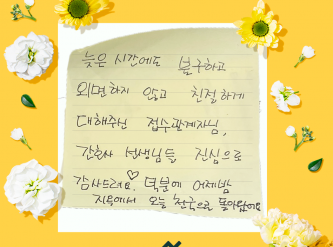 늦은 시간에도 불구하고
외면하지 않고 친절하게
대해주신 접수관계자님,
간호사 선생님들 진심으로
감사드려요♡ 덕분에 어제밤
지옥에서 오늘 천국으로 돌아왔어요